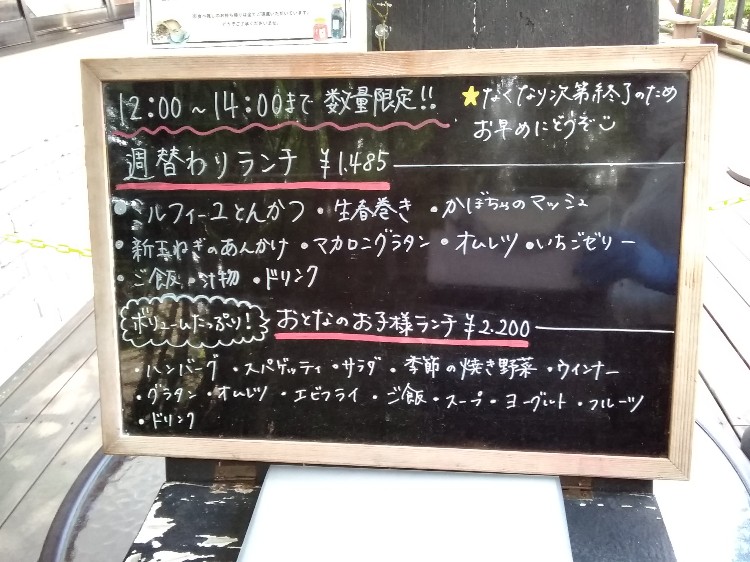 12:00～14:00まで 数量限定!!
★なくなり次第終了のため
お早めにどうぞ
週替わりランチ ¥1.485
・ミルフィーユとんかつ・生春巻き ・かぼちゃのマッシュ
・新玉ねぎのあんかけ ・マカロニグラタン・オムレツ・いちごゼリー
・ご飯・汁物 ・ドリンク
ボリュームたっぷり! おとなのお子様ランチ ¥2.200
・ハンバーグ ・スパゲッティ・サラダ ・季節の焼き野菜 ・ウインナー
・グラタン・オムレツ ・エビフライ ・ご飯・スープ・ヨーグルト・フルーツ
・ドリンク